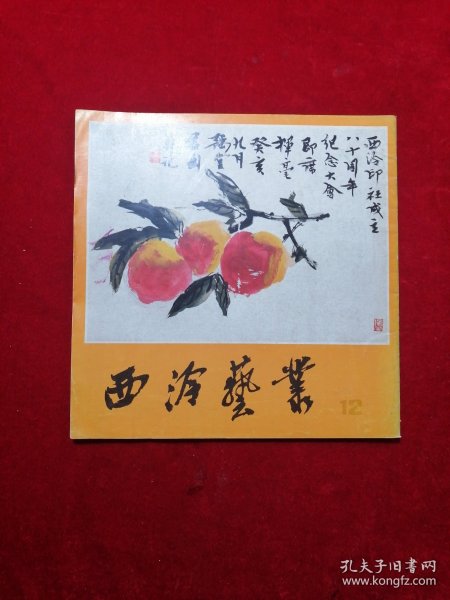 西泠印社成立
八十周年
纪念大会
即席
挥毫
癸亥
九月
西泠藝叢
12
孔夫子旧书网
www.kongfz.com